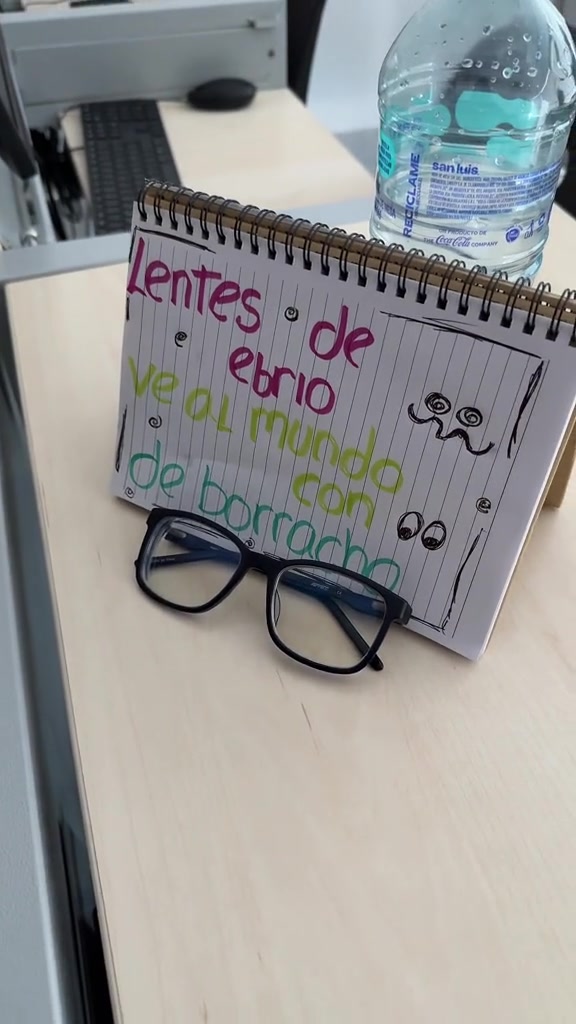 Lentes de
ebrio
ve al mundo
con
de borracho
san luis
RECICLAME
UN PRODUCTO DE
THE Coca-Cola COMPANY